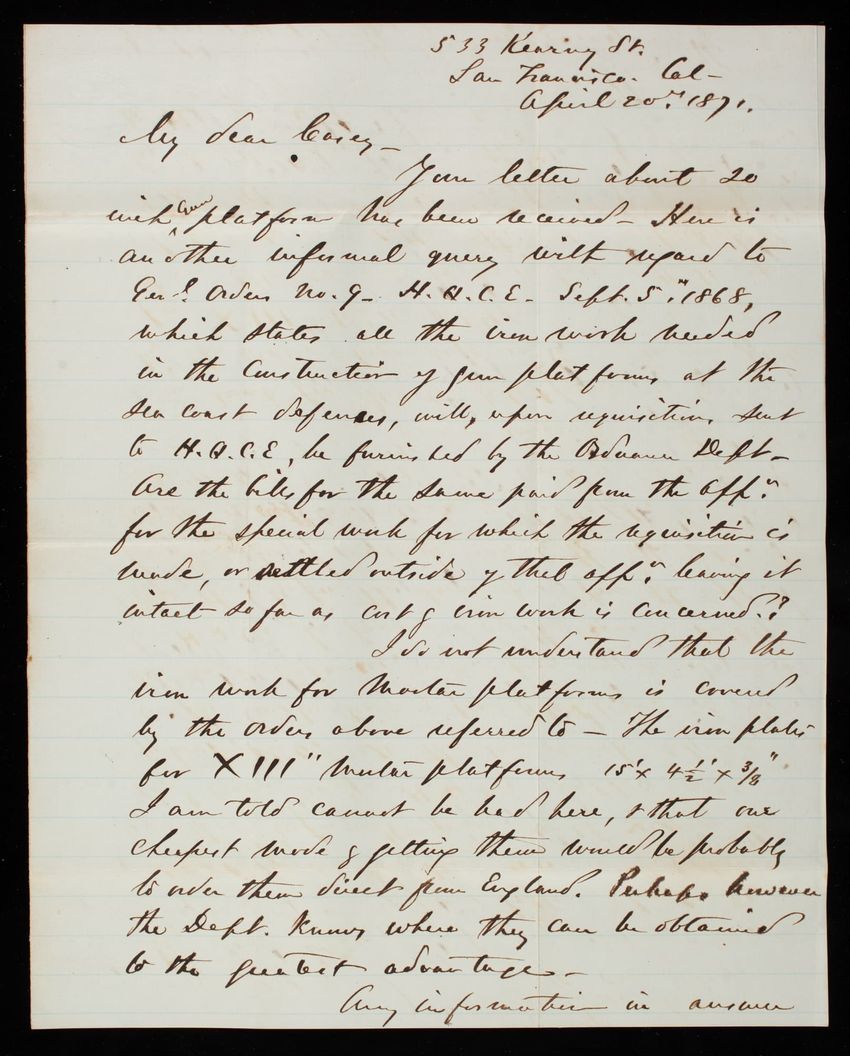 533 Kearny St.
San Francisco. Cal-
April 20th 1871.
My dear Casey-
Your letter about 20
inch Gun platform has been received- Here is
another informal query with regard to
Genl. Orders No. 9- H.Q.C.E- Sept. 5th 1868,
which states all the iron work needed
in the Construction of gun platforms at the
sea coast defences, will, upon requisition, sent
to H.Q.C.E, be furnished by the Ordnance Dept-
Are the bills for the same paid from the appn.
for the special work for which the requisition is
made, or settled outside of that appn. leaving it
intact so far as cost of iron work is concerned.?
I do not understand that the
iron work for Mortar platforms is covered
by the orders above referred to- The iron plates
for XIII" Mortar platforms 15'x 4½' x 3/8"
I am told cannot be had here, & that our
cheapest mode of getting them would be probably
to order them direct from England. Perhaps however
the Dept. knows where they can be obtained
to the greatest advantage-
Any information in answer